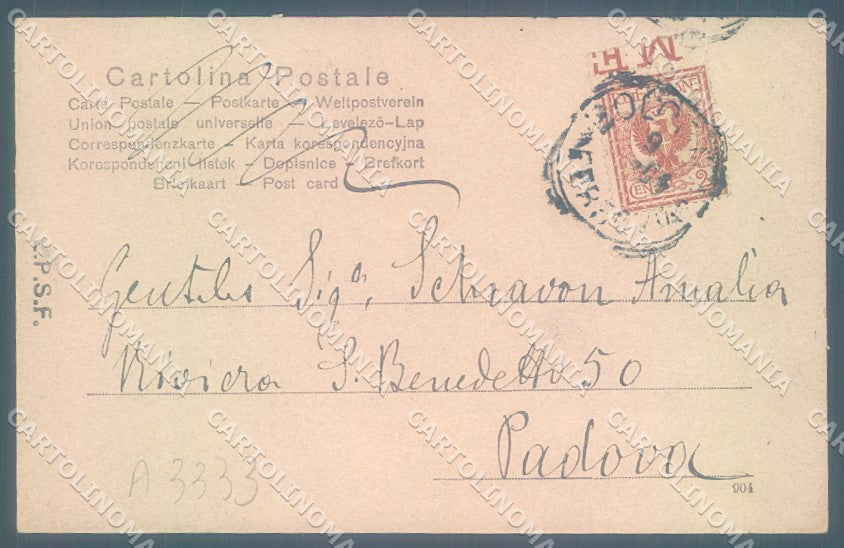 Cartolina Postale
Carte Postale — Postkarte — Weltpostverein
Union postale universelle — Levelező-Lap
Correspondenzkarte - Karta korespondencyjna
Korespondenčni listek - Dopisnice - Brefkort
Briefkaart — Post card
P.S.F.
Gentile Sigª, Schiavon Amalia
Riviera S. Benedetto 50
Padova
904
A 3333
CARTOLINOMANIA